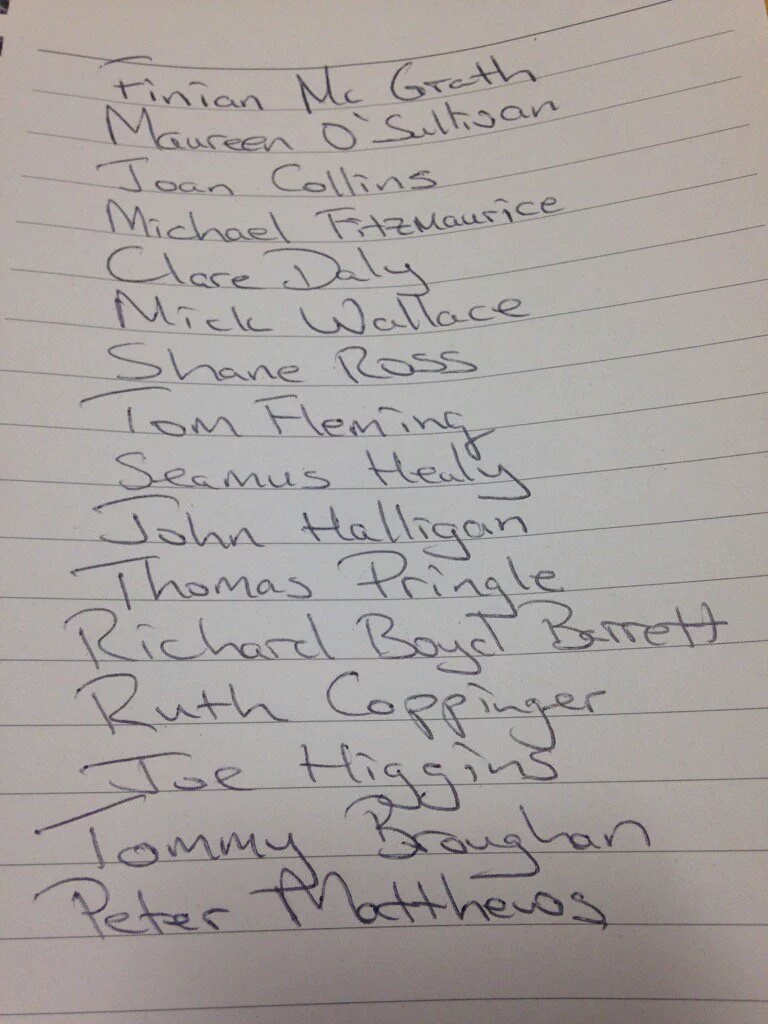 Finian Mc Grath
Maureen O'Sullivan
Joan Collins
Michael Fitzmaurice
Clare Daly
Mick Wallace
Shane Ross
Tom Fleming
Seamus Healy
John Halligan
Thomas Pringle
Richard Boyd Barrett
Ruth Coppinger
Joe Higgins
Tommy Broughan
Peter Matthews